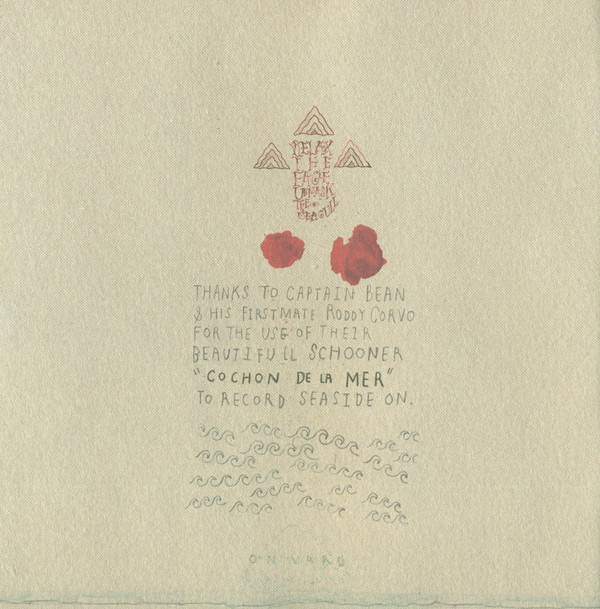 RELAX
THE
FACE
UNMASK
THE
SEAGULL
THANKS TO CAPTAIN BEAN
& HIS FIRSTMATE RODDY CORVO
FOR THE USE OF THEIR
BEAUTIFULL SCHOONER
"COCHON DE LA MER"
TO RECORD SEASIDE ON.
ONWARD